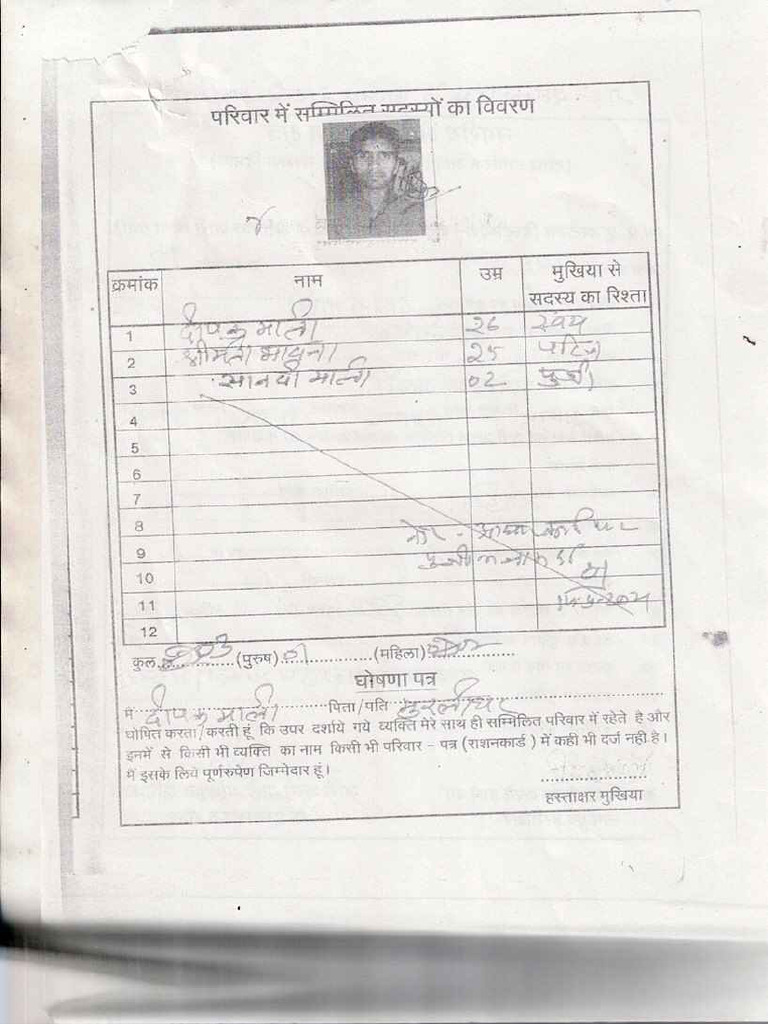 परिवार में सम्मिलित सदस्यों का विवरण
क्रमांक नाम उम्र मुखिया से सदस्य का रिश्ता
1 दीपक माली 26 स्वयं
2 श्रीमती भावना 25 पत्नि
3 सानवी माली 02 पुत्री
4
5
6
7
8
9
10
11
12
कुल 03 (पुरुष) 01 (महिला) 02
घोषणा पत्र
मैं दीपक माली पिता/पति मुरलीधर
घोषित करता/करती हूं कि उपर दर्शाये गये व्यक्ति मेरे साथ ही सम्मिलित परिवार में रहेते है और
इनमें से किसी भी व्यक्ति का नाम किसी भी परिवार - पत्र (राशनकार्ड) में कही भी दर्ज नही है।
मैं इसके लिये पूर्णरुपेण जिम्मेदार हूं।
हस्ताक्षर मुखिया